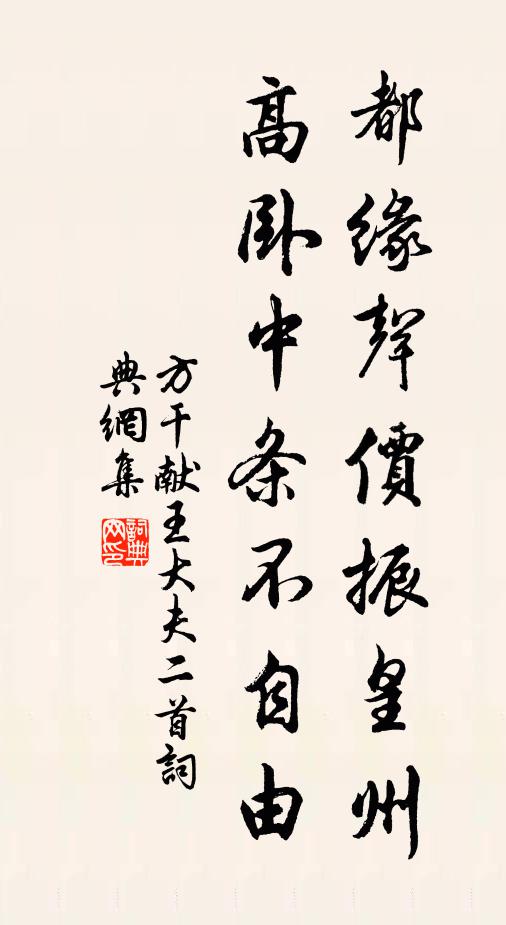 都緣聲價振皇州
高卧中条不自由
方干献王大夫二首詞
典網集
詞典网印